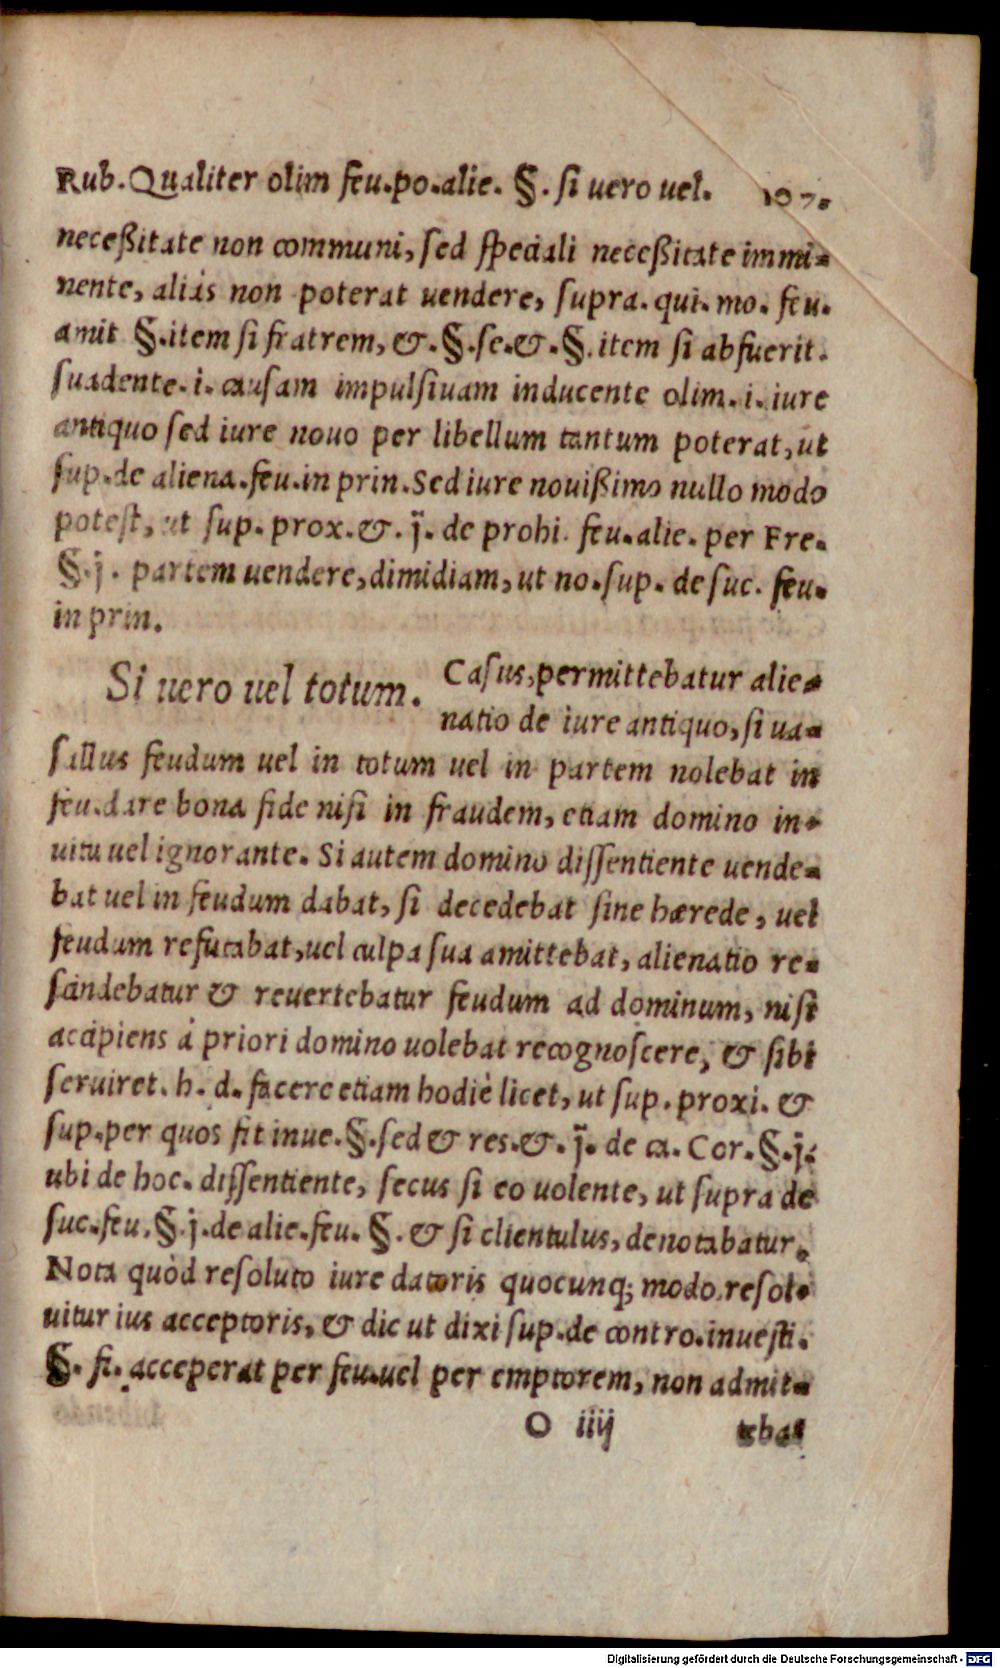 Rub. Qualiter olim feu.po.alie. §. si uero uel. 107.
neceßitate non communi, sed speciali neceßitate immi-
nente, aliàs non poterat uendere, supra. qui. mo. feu.
amit §. item si fratrem, &. §. se. &. §. item si abfuerit.
suadente. i. causam impulsiuam inducente olim. i. iure
antiquo sed iure nouo per libellum tantum poterat, ut
sup. de aliena. feu. in prin. Sed iure nouißimo nullo modo
potest, ut sup. prox. &. j̃. de prohi. feu. alie. per Fre.
§. j. partem uendere, dimidiam, ut no. sup. de suc. feu.
in prin.
Si uero uel totum. Casus, permittebatur alie-
natio de iure antiquo, si ua-
sallus feudum uel in totum uel in partem nolebat in
feu. dare bona fide nisi in fraudem, etiam domino in-
uitu uel ignorante. Si autem domino dissentiente uende-
bat uel in feudum dabat, si decedebat sine hærede, uel
feudum refutabat, uel culpa sua amittebat, alienatio re-
scindebatur & reuertebatur feudum ad dominum, nisi
accipiens à priori domino uolebat recognoscere, & sibi
seruiret. h. d. facere etiam hodiè licet, ut sup. proxi. &
sup. per quos fit inue. §. sed & res. &. j̃. de ca. Cor. §. j.
ubi de hoc. dissentiente, secus si eo uolente, ut supra de
suc. feu. §. j. de alie. feu. §. & si clientulus, denotabatur.
Nota quòd resoluto iure datoris quocunq; modo resol-
uitur ius acceptoris, & dic ut dixi sup. de contro. inuesti.
§. fi. acceperat per feu. uel per emptorem, non admit-
O iiij tebat